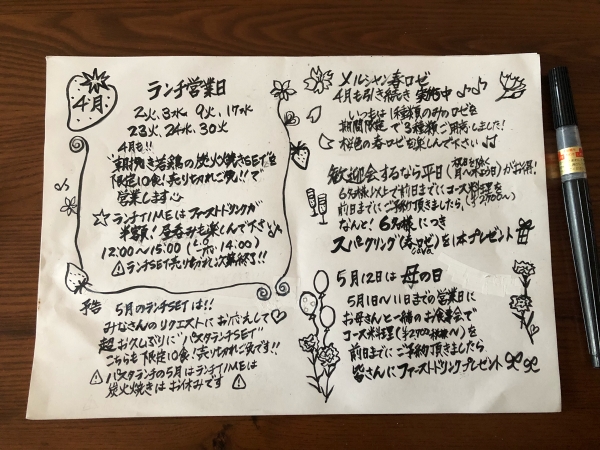 4月
ランチ営業日
2火、3水、9火、17水
23火、24水、30火
4月も!!
"朝挽き若鶏の炭火焼きSET"を
限定10食!売り切れご免!!で
営業します
☆ランチTIMEはファーストドリンクが
半額!昼呑みも楽しんで下さい♪
12:00〜15:00 (L.O 14:00)
⚠ランチSET売り切れ次第終了!!
予告 5月のランチSETは!!
みなさんのリクエストにお応えして♡
超お久しぶりに"パスタランチSET"
こちらも限定10食!売り切れご免です!!
⚠パスタランチの5月はランチTIMEは
炭火焼きはお休みです⚠
メルシャン春ロゼ
4月も引き続き実施中♪♪
いつもは1種類のみのロゼを
期間限定で3種類ご用意しました!
桜色の春ロゼを楽しんで下さい♪
歓迎会するなら平日(月〜木の祝日を除く)がお得!
6名様以上で前日までにコース料理を
前日までにご予約頂きましたら(¥2700〜)
なんと!6名様につき
スパークリング(春ロゼorCAVA)を1本プレゼント
5月12日は母の日
5月1日〜11日までの営業日に
お母さんと一緒のお食事会で
コース料理(¥2700税抜〜)を
前日までにご予約頂きましたら
皆さんにファーストドリンクプレゼント